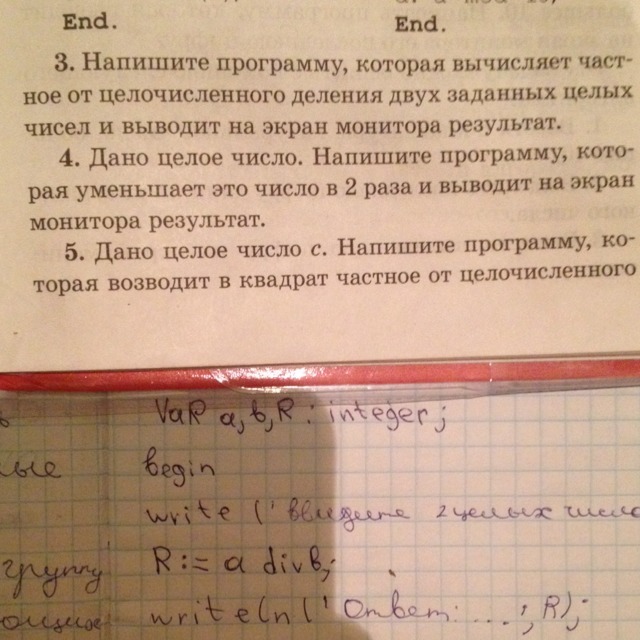 End. End.
3. Напишите программу, которая вычисляет част-
ное от целочисленного деления двух заданных целых
чисел и выводит на экран монитора результат.
4. Дано целое число. Напишите программу, кото-
рая уменьшает это число в 2 раза и выводит на экран
монитора результат.
5. Дано целое число с. Напишите программу, ко-
торая возводит в квадрат частное от целочисленного
VaR a,b,R : integer;
begin
write (' введите 2 целых число
группу R:= a div b;
writeln (' Ответ: ...', R);